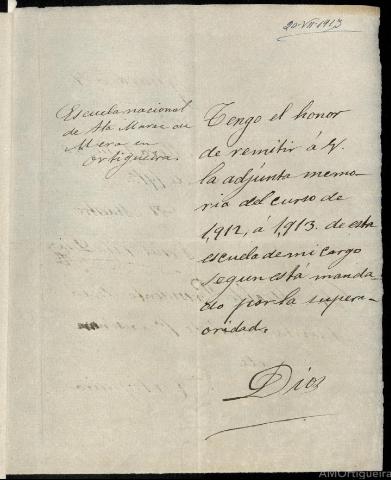 20-VII-1913
Escuela nacional
de Sta Maria de
Mera en
Ortigueira.
Tengo el honor
de remitir á V.
la adjunta memo
ria del curso de
1,912, á 1,913. de esta
escuela de mi cargo
segun está manda
do por la super-
oridad.
Dios
AMOrtigueira